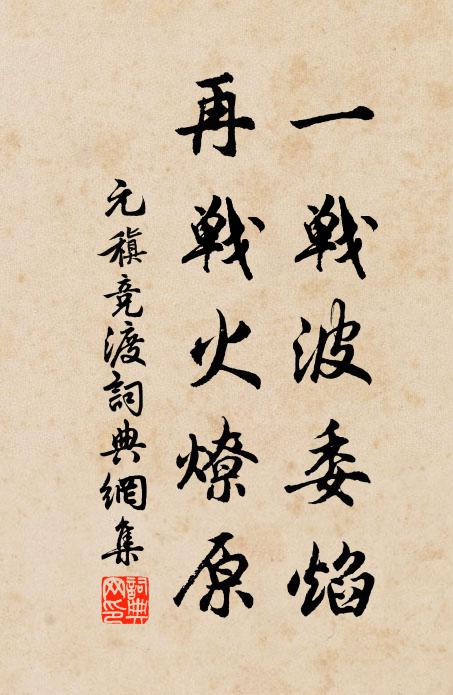 一戰波委焰
再戰火燎原
元稹竞渡詞典網集
詞典